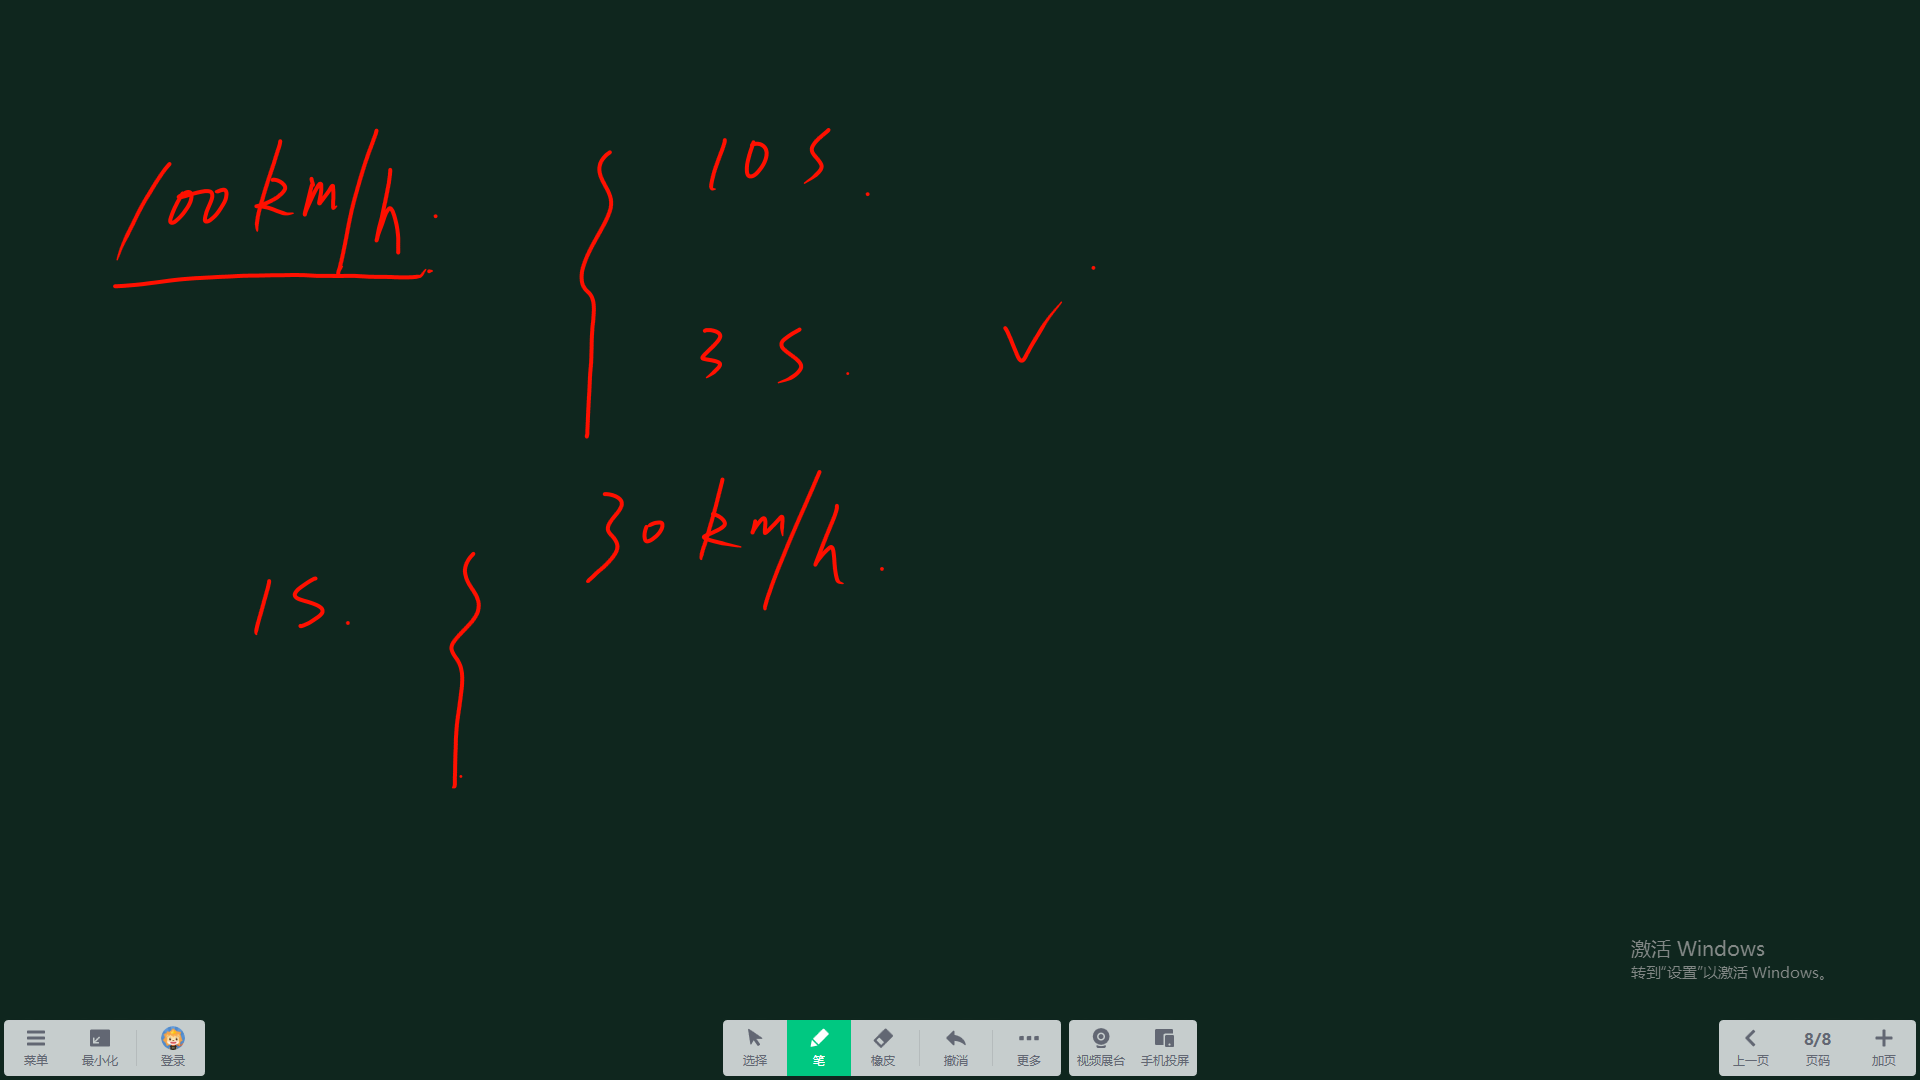 100 km/h.
10 s.
3 s. ✓
30 km/h.
1s.
激活 Windows
转到“设置”以激活 Windows。
菜单 最小化 登录 选择 笔 橡皮 撤消 更多 视频展台 手机投屏 上一页 8/8 页码 加页